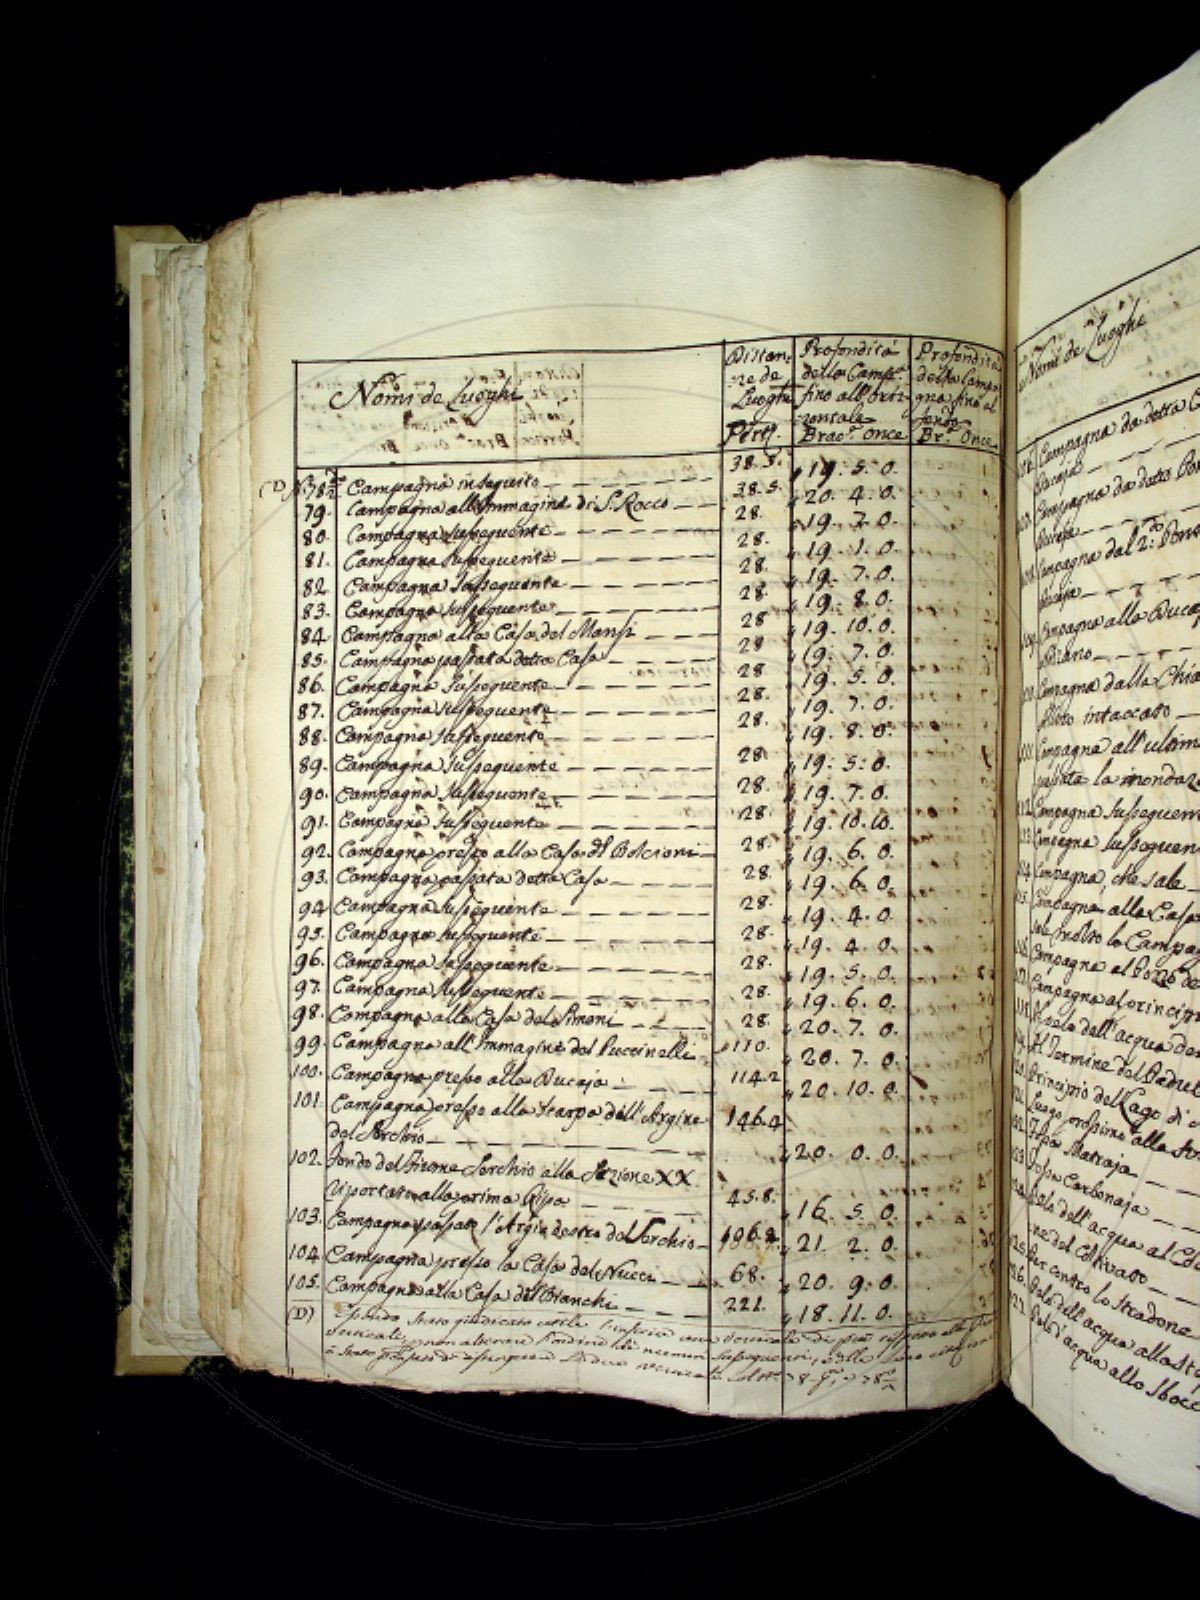 Nomi de Luoghi
Distan-
ze de
Luoghi
Pert.
Profondità
della Camp.a
fino all'oriz-
zontale
Brac.a Once
Profondità
della Campa-
gna fino al
fondo
Br.a Once
(D) N. 78 2.a Campagna in seguito 38.5. 19. 5. 0.
79. Campagna all'Immagine di S. Rocco 38.5. 20. 4. 0.
80. Campagna susseguente 28. 19. 7. 0.
81. Campagna susseguente 28. 19. 1. 0.
82. Campagna susseguente 28. 19. 7. 0.
83. Campagna susseguente 28. 19. 8. 0.
84. Campagna alla Casa del Mansi 28 19. 10. 0.
85. Campagna passata detta Casa 28 19. 7. 0.
86. Campagna susseguente 28 19. 5. 0.
87. Campagna susseguente 28. 19. 7. 0.
88. Campagna susseguente 28. 19. 8. 0.
89. Campagna susseguente 28. 19. 5. 0.
90. Campagna susseguente 28. 19. 7. 0.
91. Campagna susseguente 28. 19. 10. 0.
92. Campagna presso alla Casa del Bolcioni 28. 19. 6. 0.
93. Campagna passata detta Casa 28. 19. 6. 0.
94. Campagna susseguente 28. 19. 4. 0.
95. Campagna susseguente 28. 19. 4. 0.
96. Campagna susseguente 28. 19. 5. 0.
97. Campagna susseguente 28. 19. 6. 0.
98. Campagna alla Casa del Simoni 28. 20. 7. 0.
99. Campagna all'Immagine del Puccinelli 110. 20. 7. 0.
100. Campagna presso alla Bucaja 114.2 20. 10. 0.
101. Campagna presso alla scarpa dell'Argine 146.4
del Serchio 20. 0. 0.
102. Fondo del Fiume Serchio alla Sezione XX
riportato alla prima Ripa 45.8. 16. 5. 0.
103. Campagna passato l'Argin destro del Serchio 21. 2. 0.
104. Campagna presso la Casa del Nucci 68. 20. 9. 0.
105. Campagna alla Casa del Bianchi 221. 18. 11. 0.
(D) Essendo stato giudicato utile l'inserire una verticale di più
verticali, per non alterare l'ordine de numeri susseguenti, e delle loro citazioni
è stato di distinguere le due verticali
Nomi de Luoghi
Campagna da detta
Bucaja
Campagna da detto Pon
Bucaja
Campagna dal 2.do Ponte
Bucaja
Campagna alla Buca
Campagna dalla Chia
intaccato
Campagna all'ultim
passata la inondaz
112 Campagna susseguen
113 Campagna susseguen
114 Campagna, che sale
115. Campagna alla Casa
sale molto la Campag
Campagna al Pozzo de
Campagna al princip
Pelo dell'acqua de
Al Termine del Padul
Principio del Lago di
Luogo prossimo alla
Fossa Matraja
Fossa Carbonaja
Pelo dell'acqua al
ne del Coltivato
Per contro lo Stradone
Pelo dell'acqua alla
Pelo d'acqua allo Sbocc